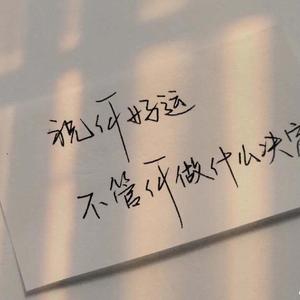 祝你好运
不管你做什么决定